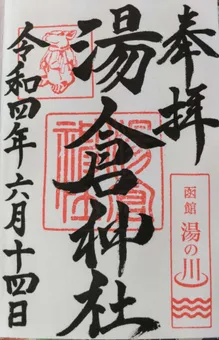 奉拝
函館
湯の川
湯倉神社
湯倉神社
令和四年六月十四日